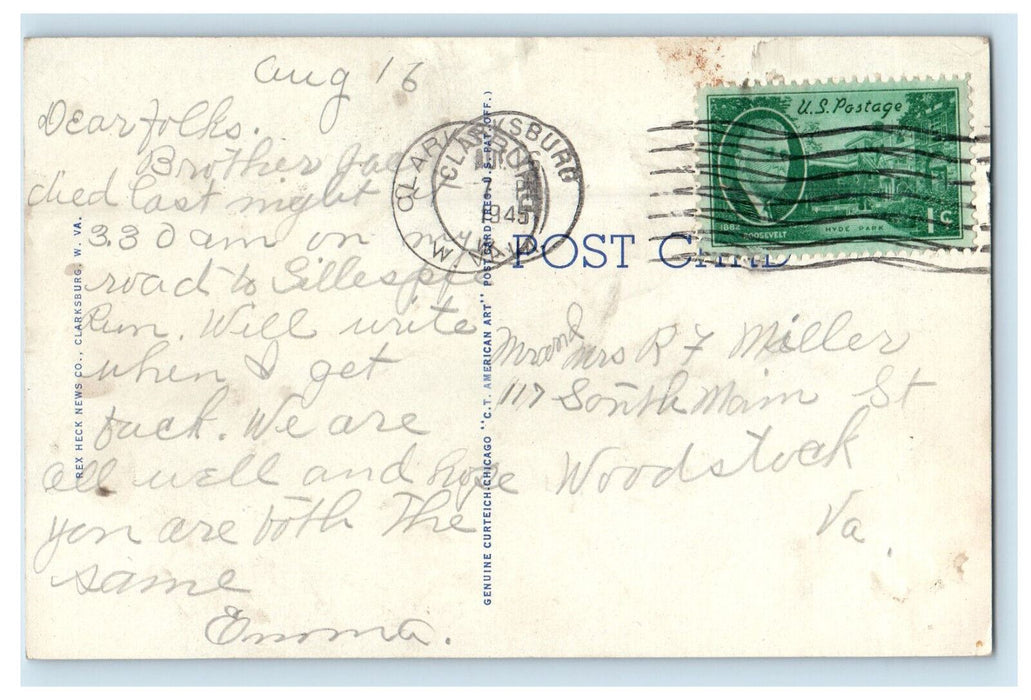 Aug 16
Dear folks.
Brother
died last night at
330 am on my
road to Gillespie
Run. Will write
when I get
back. We are
all well and hope
you are both the
same
Emma.
REX HECK NEWS CO., CLARKSBURG, W. VA.
GENUINE CURTEICH-CHICAGO "C.T. AMERICAN ART" POST CARD (REG. U.S. PAT. OFF.)
CLARKSBURG
CLARKSBURG
1945
W. VA.
U.S. Postage
1882
ROOSEVELT
HYDE PARK
1¢
POST CARD
Mr and Mrs R F Miller
117 South Main St
Woodstock
Va.